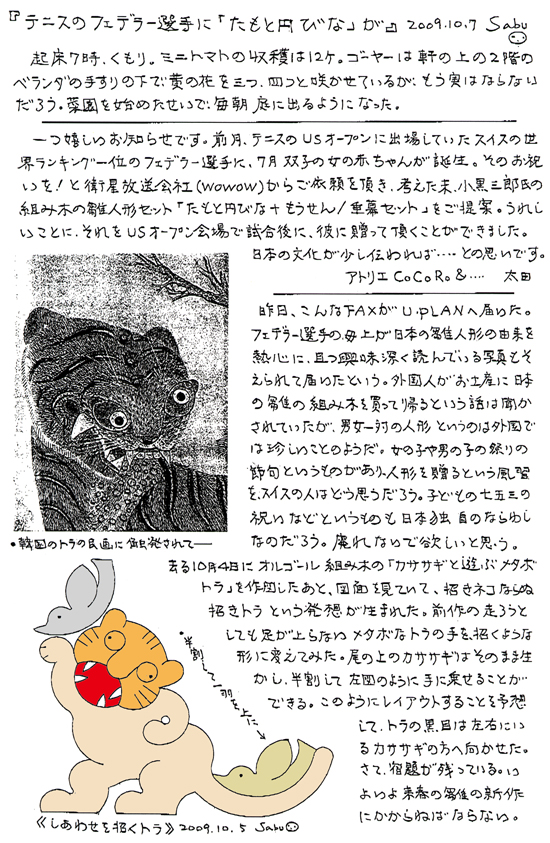 『テニスのフェデラー選手に「たもと円びな」が』 2009.10.7 Sabu
起床7時、くもり。ミニトマトの収穫は12ケ。ゴーヤーは軒の上の2階の
ベランダの手すりの下で、黄の花を三つ、四つと咲かせているが、もう実はならない
だろう。菜園を始めたせいで、毎朝庭に出るようになった。
一つ嬉しいお知らせです。前月、テニスのUSオープンに出場していたスイスの世
界ランキング一位のフェデラー選手に、7月双子の女の赤ちゃんが誕生。そのお祝
いを!と衛星放送会社(wowow)からご依頼を頂き、考えた末、小黒三郎氏の
組み木の雛人形セット「たもと円びな+もうせん/垂幕セット」をご提案。うれし
いことに、それをUSオープン会場で試合後に、彼に贈って頂くことができました。
日本の文化が少し伝われば‥‥との思いです。
アトリエCoCoRo&‥‥ 太田
昨日、こんなFAXがU-PLANへ届いた。
フェデラー選手の母上が日本の雛人形の由来を
熱心に、且つ興味深く読んでいる写真もそ
えられて届いたという。外国人がお土産に日本
の雛の組み木を買って帰るという話は聞か
されていたが、男女一対の人形というのは外国で
は珍しいことのようだ。女の子や男の子の祭りの
節句というものがあり、人形を贈るという風習
を、スイスの人はどう思うだろう。子どもの七五三の
祝いなどというものも日本独自のならわし
なのだろう。廃れないで欲しいと思う。
•韓国のトラの民画に触発されて—
去る10月4日にオルゴール組み木の「カササギと遊ぶメタボ
トラ」を作図したあと、図面を見ていて、招きネコならぬ
招きトラという発想が生まれた。前作の走ろうと
しても足が上らないメタボなトラの手を、招くような
形に変えてみた。尾の上のカササギはそのまま生
かし、半割して左図のように手に乗せることが
できる。このようにレイアウトすることを予想
して、トラの黒目は左右にい
るカササギの方へ向かせた。
さて、宿題が残っている。い
よいよ来春の雛の新作
にかからねばならない。
•半割して一羽を上に
《しあわせを招くトラ》 2009.10.5 Sabu